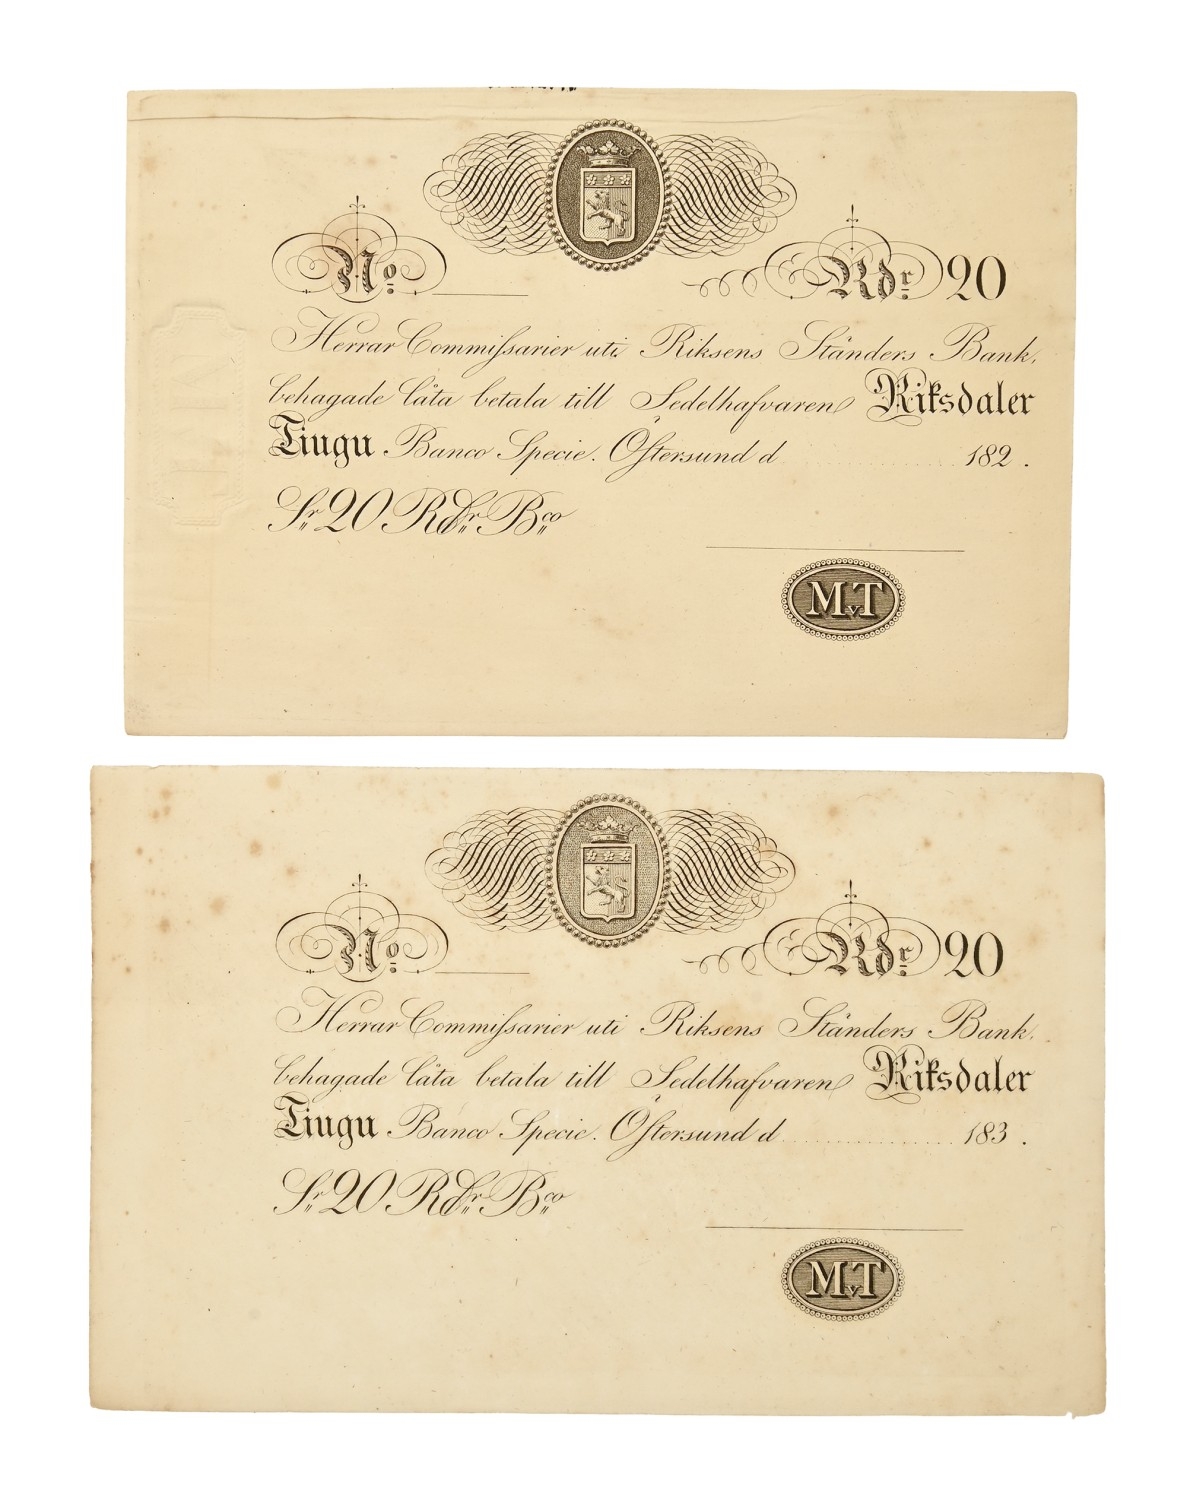 No
Rdr 20
Herrar Commiſsarier uti Riksens Ständers Bank,
behagade låta betala till Sedelhafvaren Riksdaler
Tjugu Banco Specie. Östersund d ............ 182 .
Sr 20 RDr Bco
MvT
No
Rdr 20
Herrar Commiſsarier uti Riksens Ständers Bank,
behagade låta betala till Sedelhafvaren Riksdaler
Tjugu Banco Specie. Östersund d ............ 183 .
Sr 20 RDr Bco
MvT